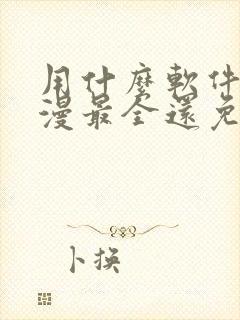 用什麼軟件
漫最全還免
卜换